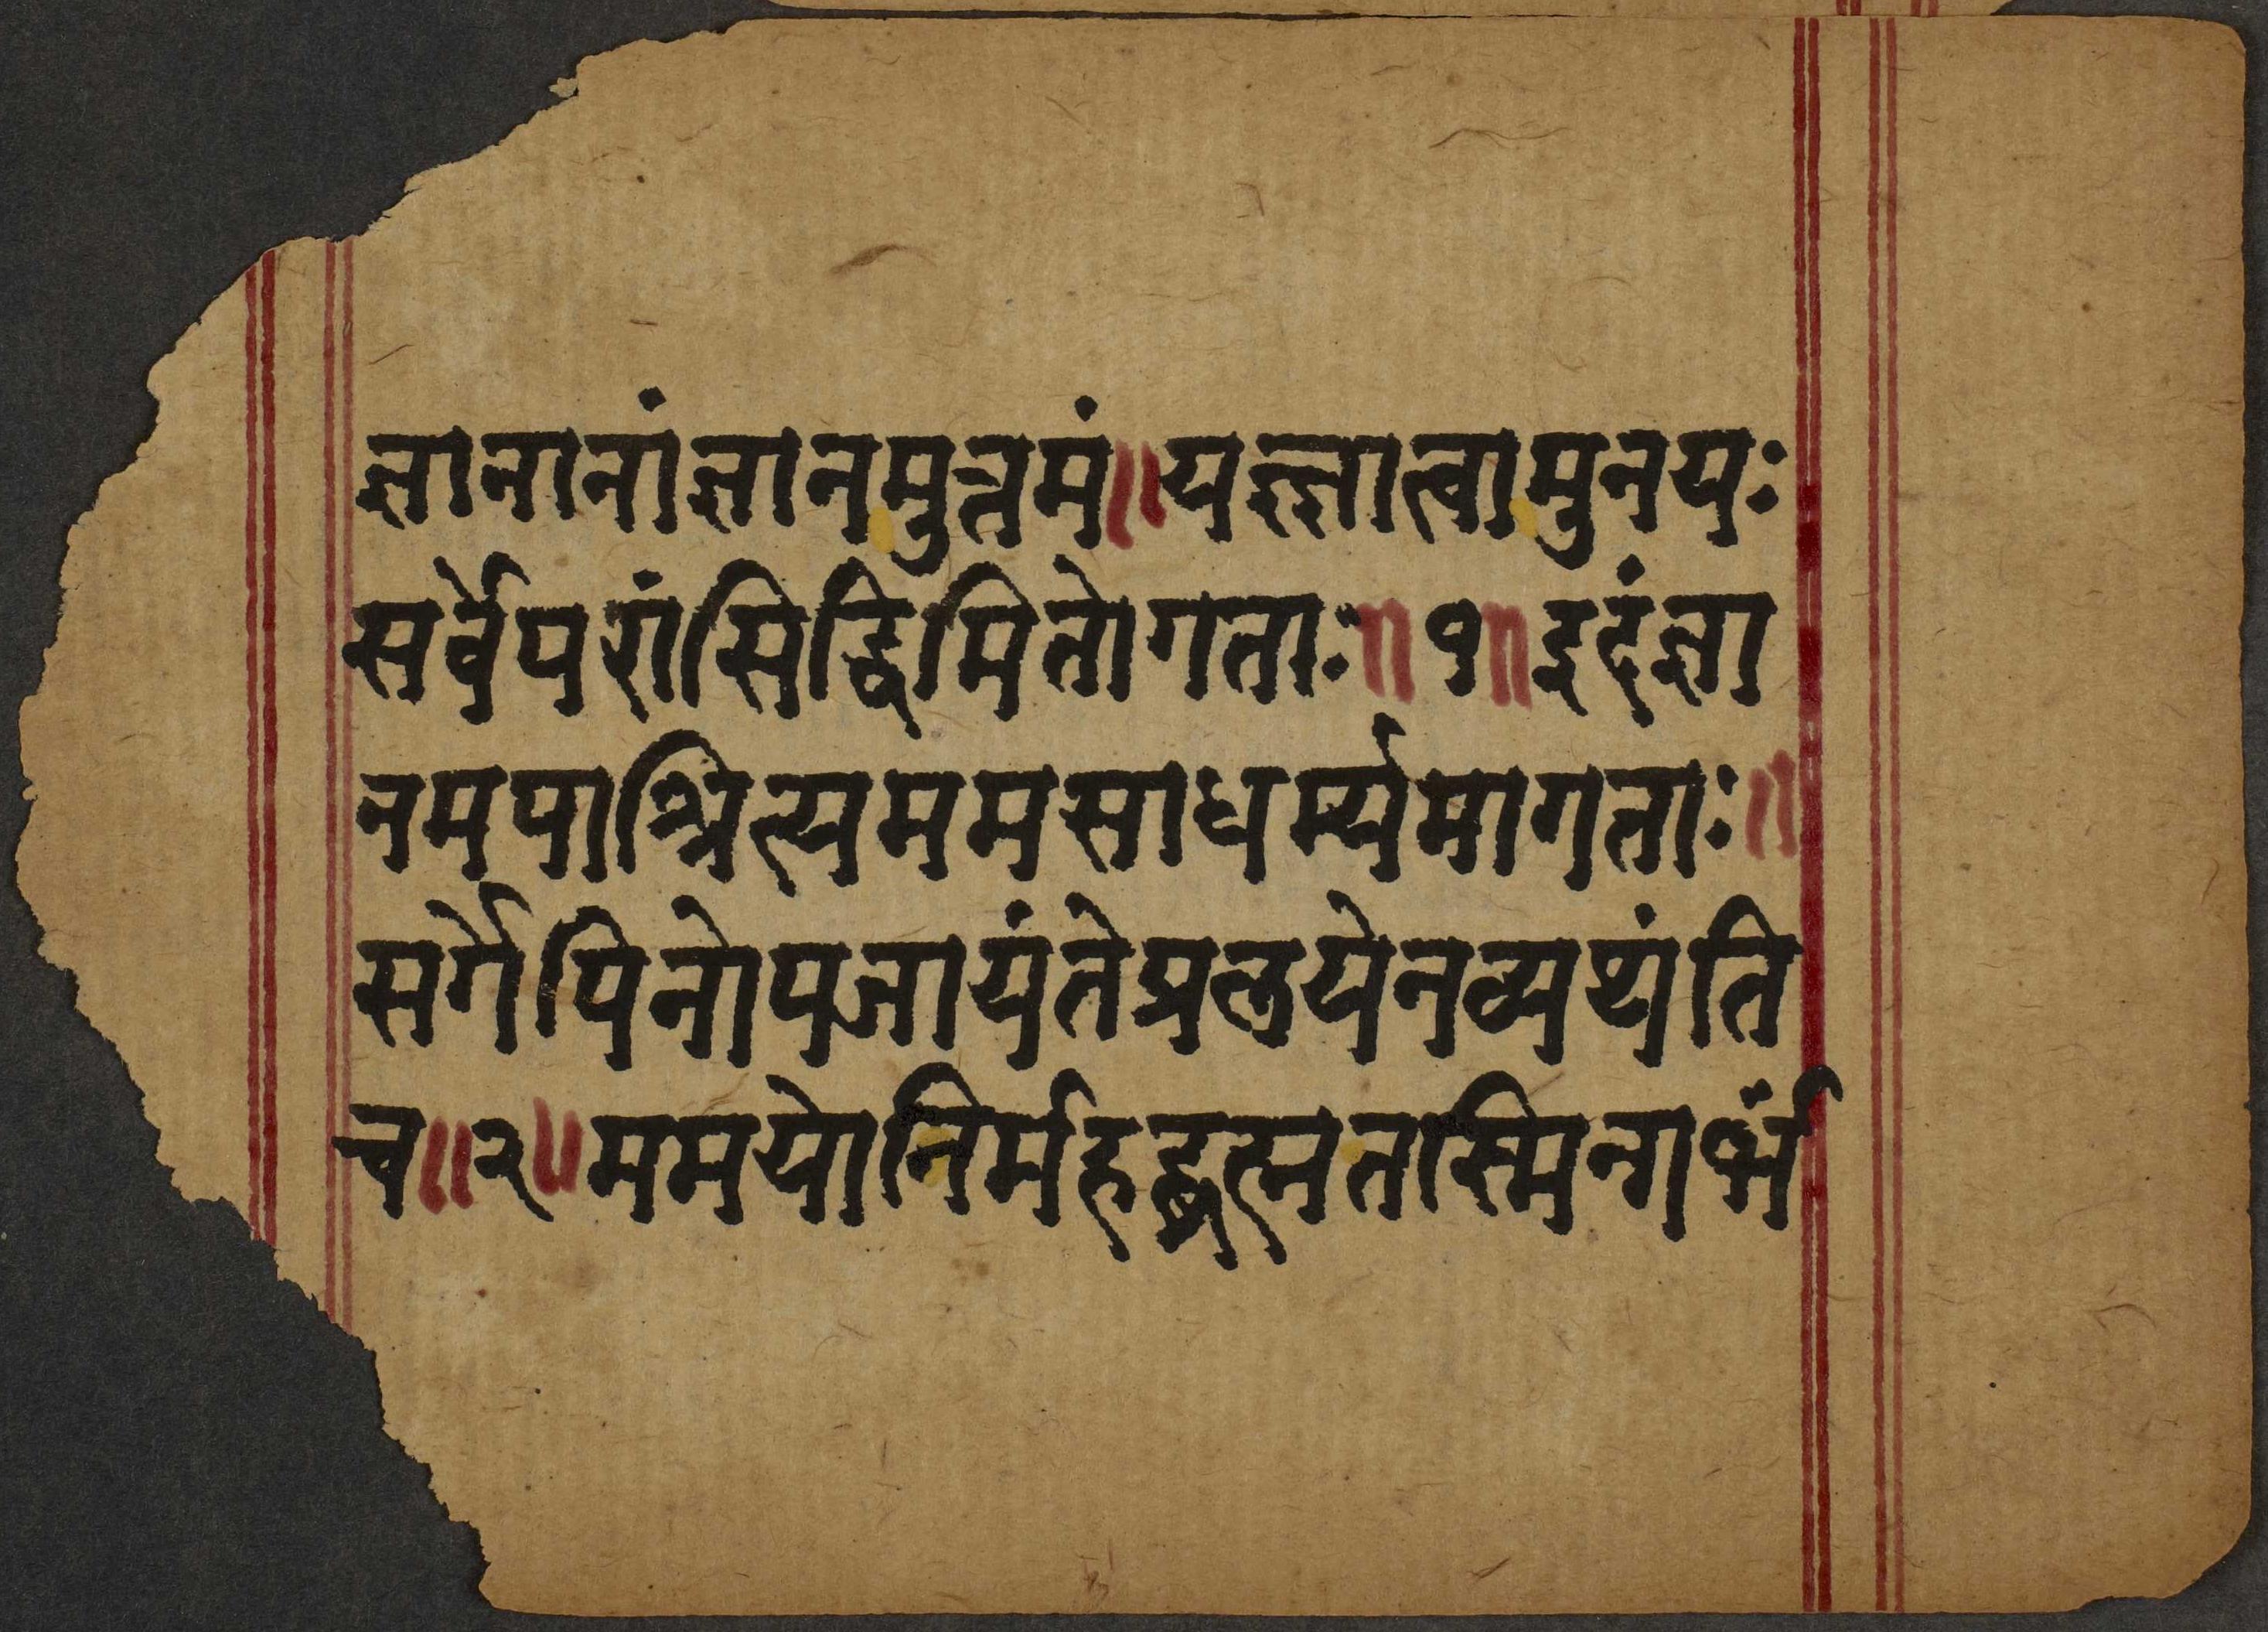 ज्ञानानांज्ञानमुत्तमं॥यज्ज्ञात्वामुनयः
सर्वेपरांसिद्धिमितोगताः॥१॥इदंज्ञा
नमपाश्रित्यममसाधर्म्यमागताः॥
सर्गेपिनोपजायंतेप्रलयेनव्यथंति
च॥२॥ममयोनिर्महद्ब्रह्मतस्मिन्गर्भं